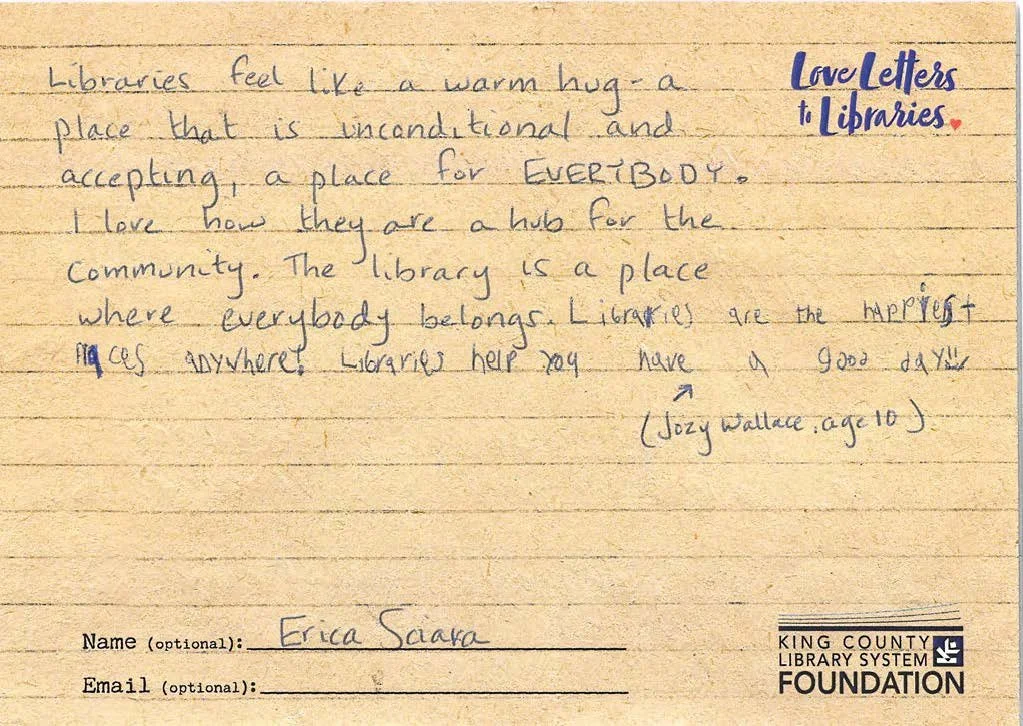 Libraries feel like a warm hug - a
Love Letters
to Libraries
place that is unconditional and
accepting, a place for EVERYBODY.
I love how they are a hub for the
community. The library is a place
where everybody belongs. Libraries are the happiest
places anywhere! Libraries help you have a good day
(Jozy Wallace, age 10)
Name (optional): Erica Sciara
Email (optional):
KING COUNTY
LIBRARY SYSTEM
FOUNDATION